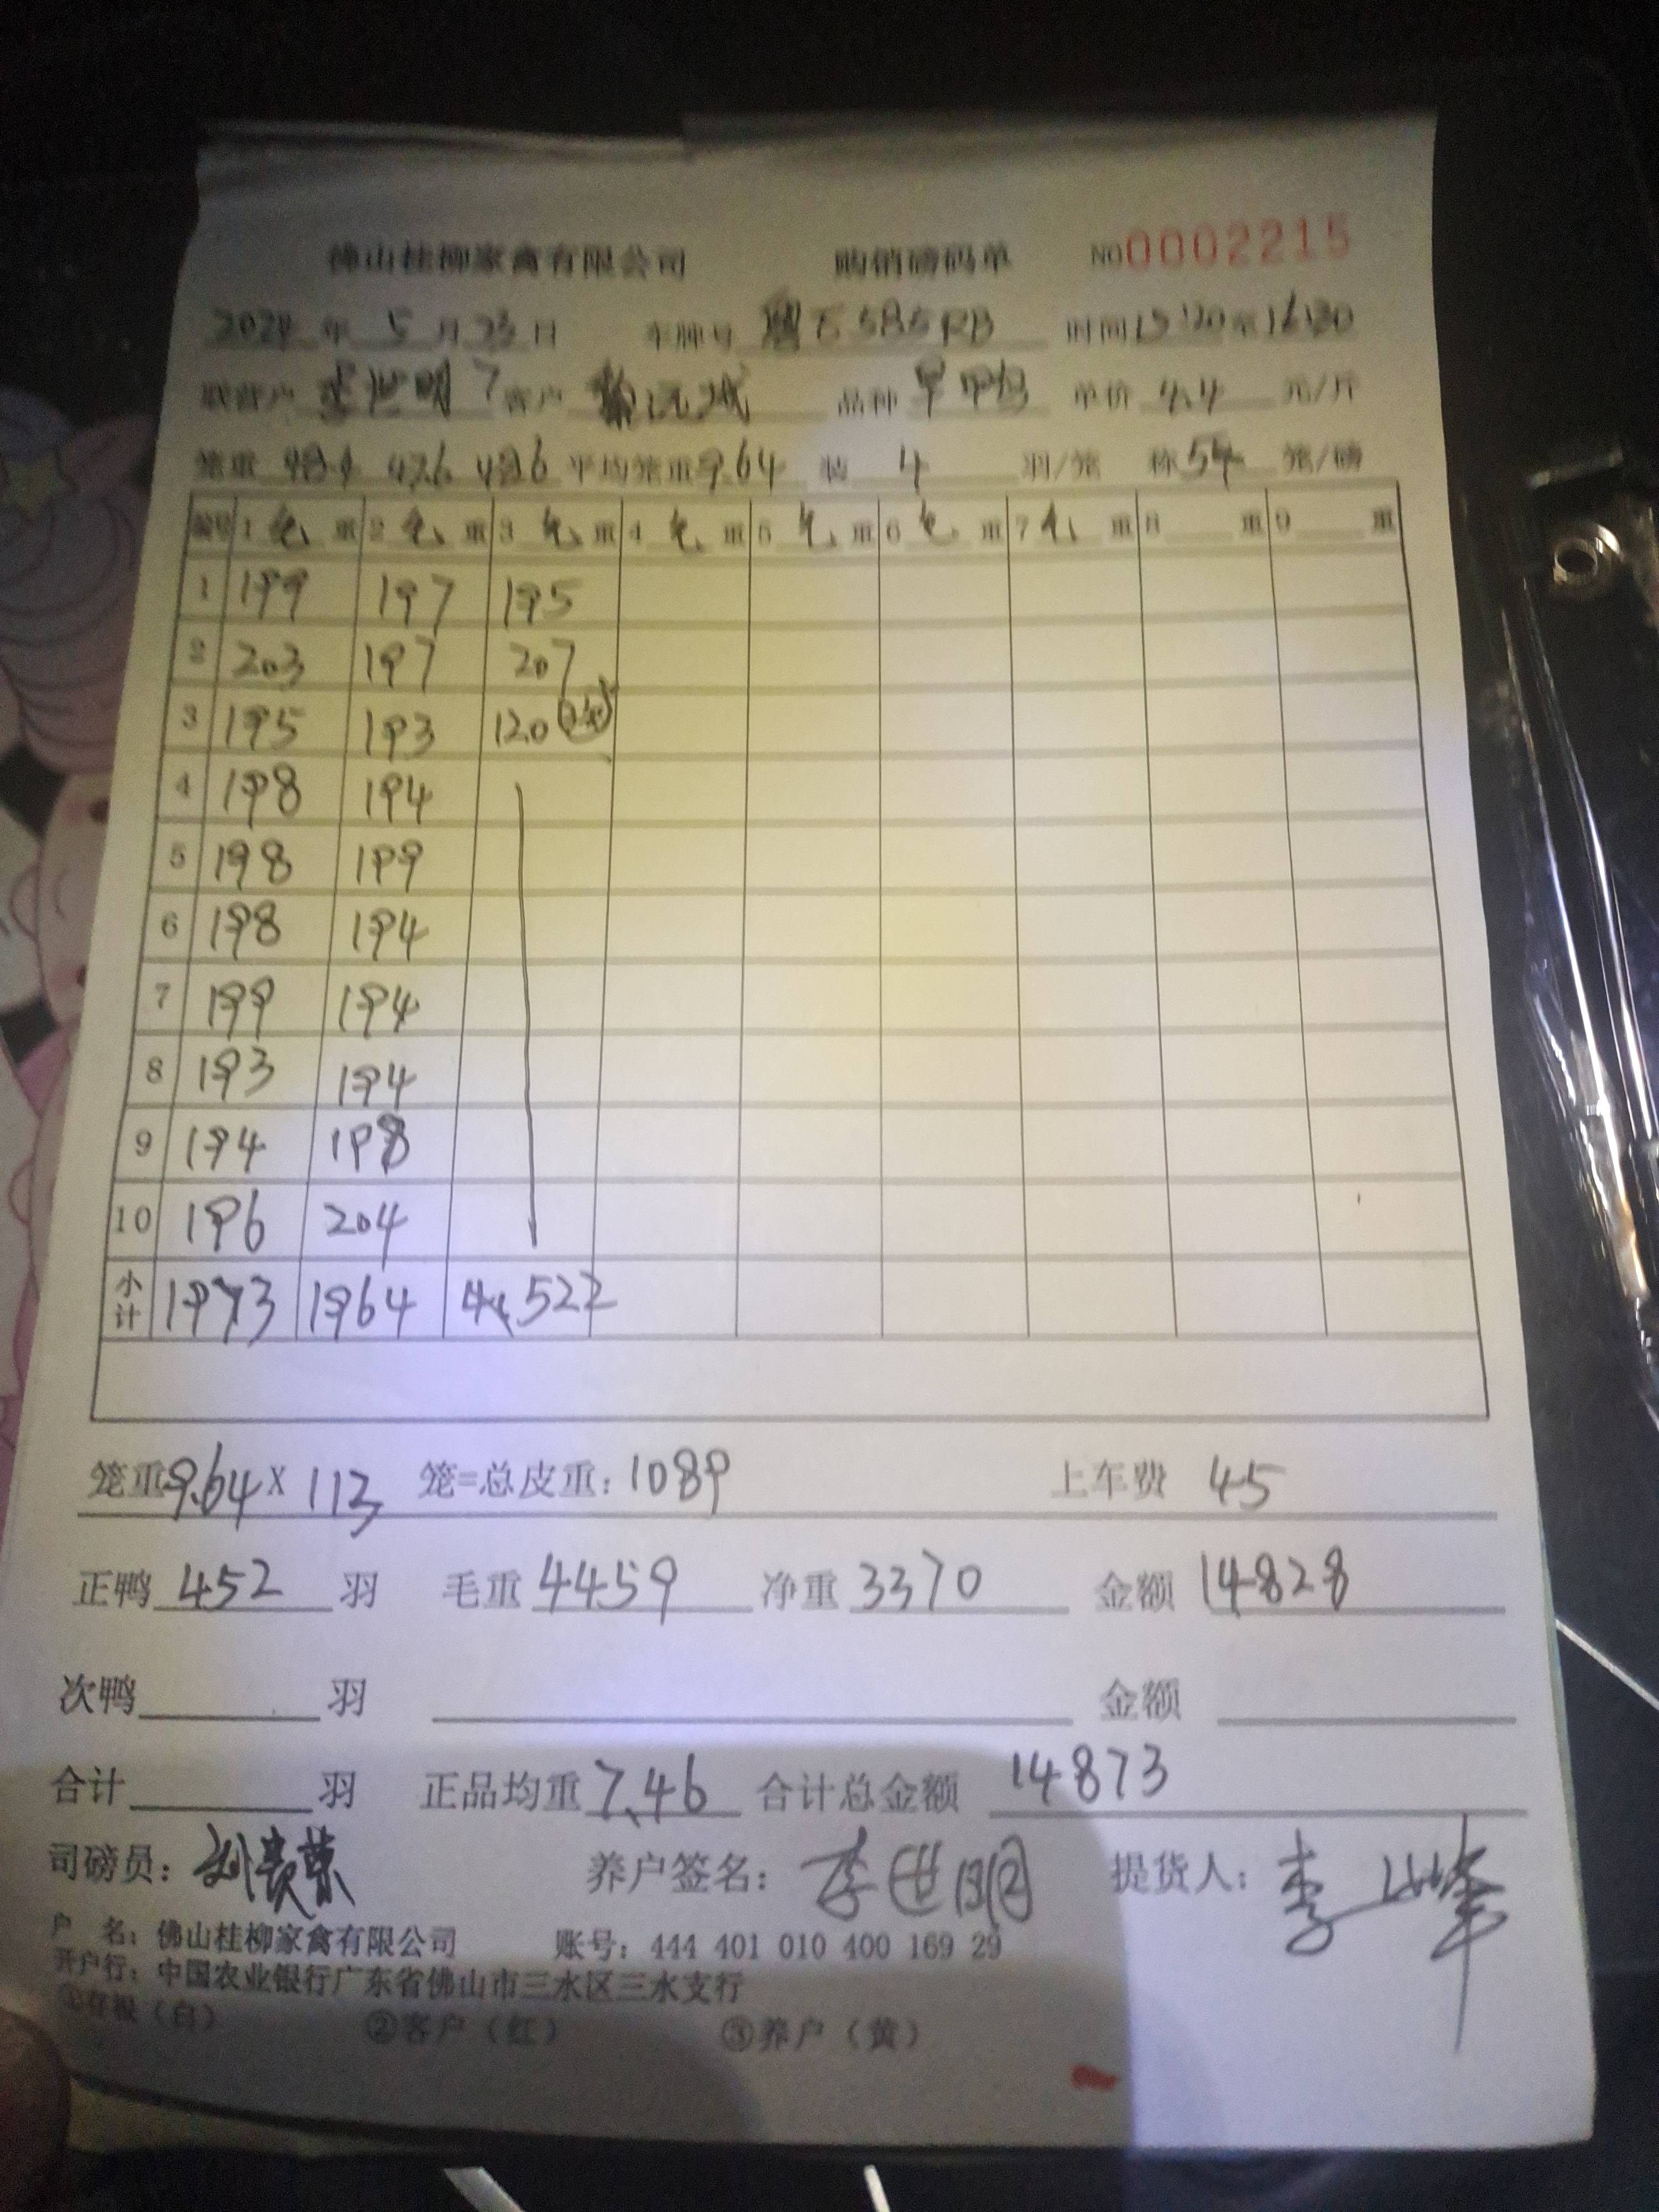 佛山桂柳家禽有限公司 购销磅码单 NO0002215
2024年 5月23日 车牌号 时间15:20至16:30
联营户 李世明 客户 品种 单价 4.4 元/斤
笼重 48.4 47.6 48.6 平均笼重9.64 装 4 羽/笼 称54 笼/磅
编号 1毛重 2毛重 3毛重 4毛重 5毛重 6毛重 7毛重 8重 9重
1 199 197 195
2 203 197 207
3 195 193 120
4 198 194
5 198 199
6 198 194
7 199 194
8 193 194
9 194 198
10 196 204
小计 1973 1964 522
笼重9.64X113 笼=总皮重:1089 上车费 45
正鸭 452 羽 毛重 4459 净重 3370 金额 14828
次鸭 羽 金额
合计 羽 正品均重 7.46 合计总金额 14873
司磅员: 刘贵荣 养户签名: 李世明 提货人: 李山峰
户 名: 佛山桂柳家禽有限公司 账号: 444 401 010 400 169 29
开户行: 中国农业银行广东省佛山市三水区三水支行
①存根(白) ②客户(红) ③养户(黄)